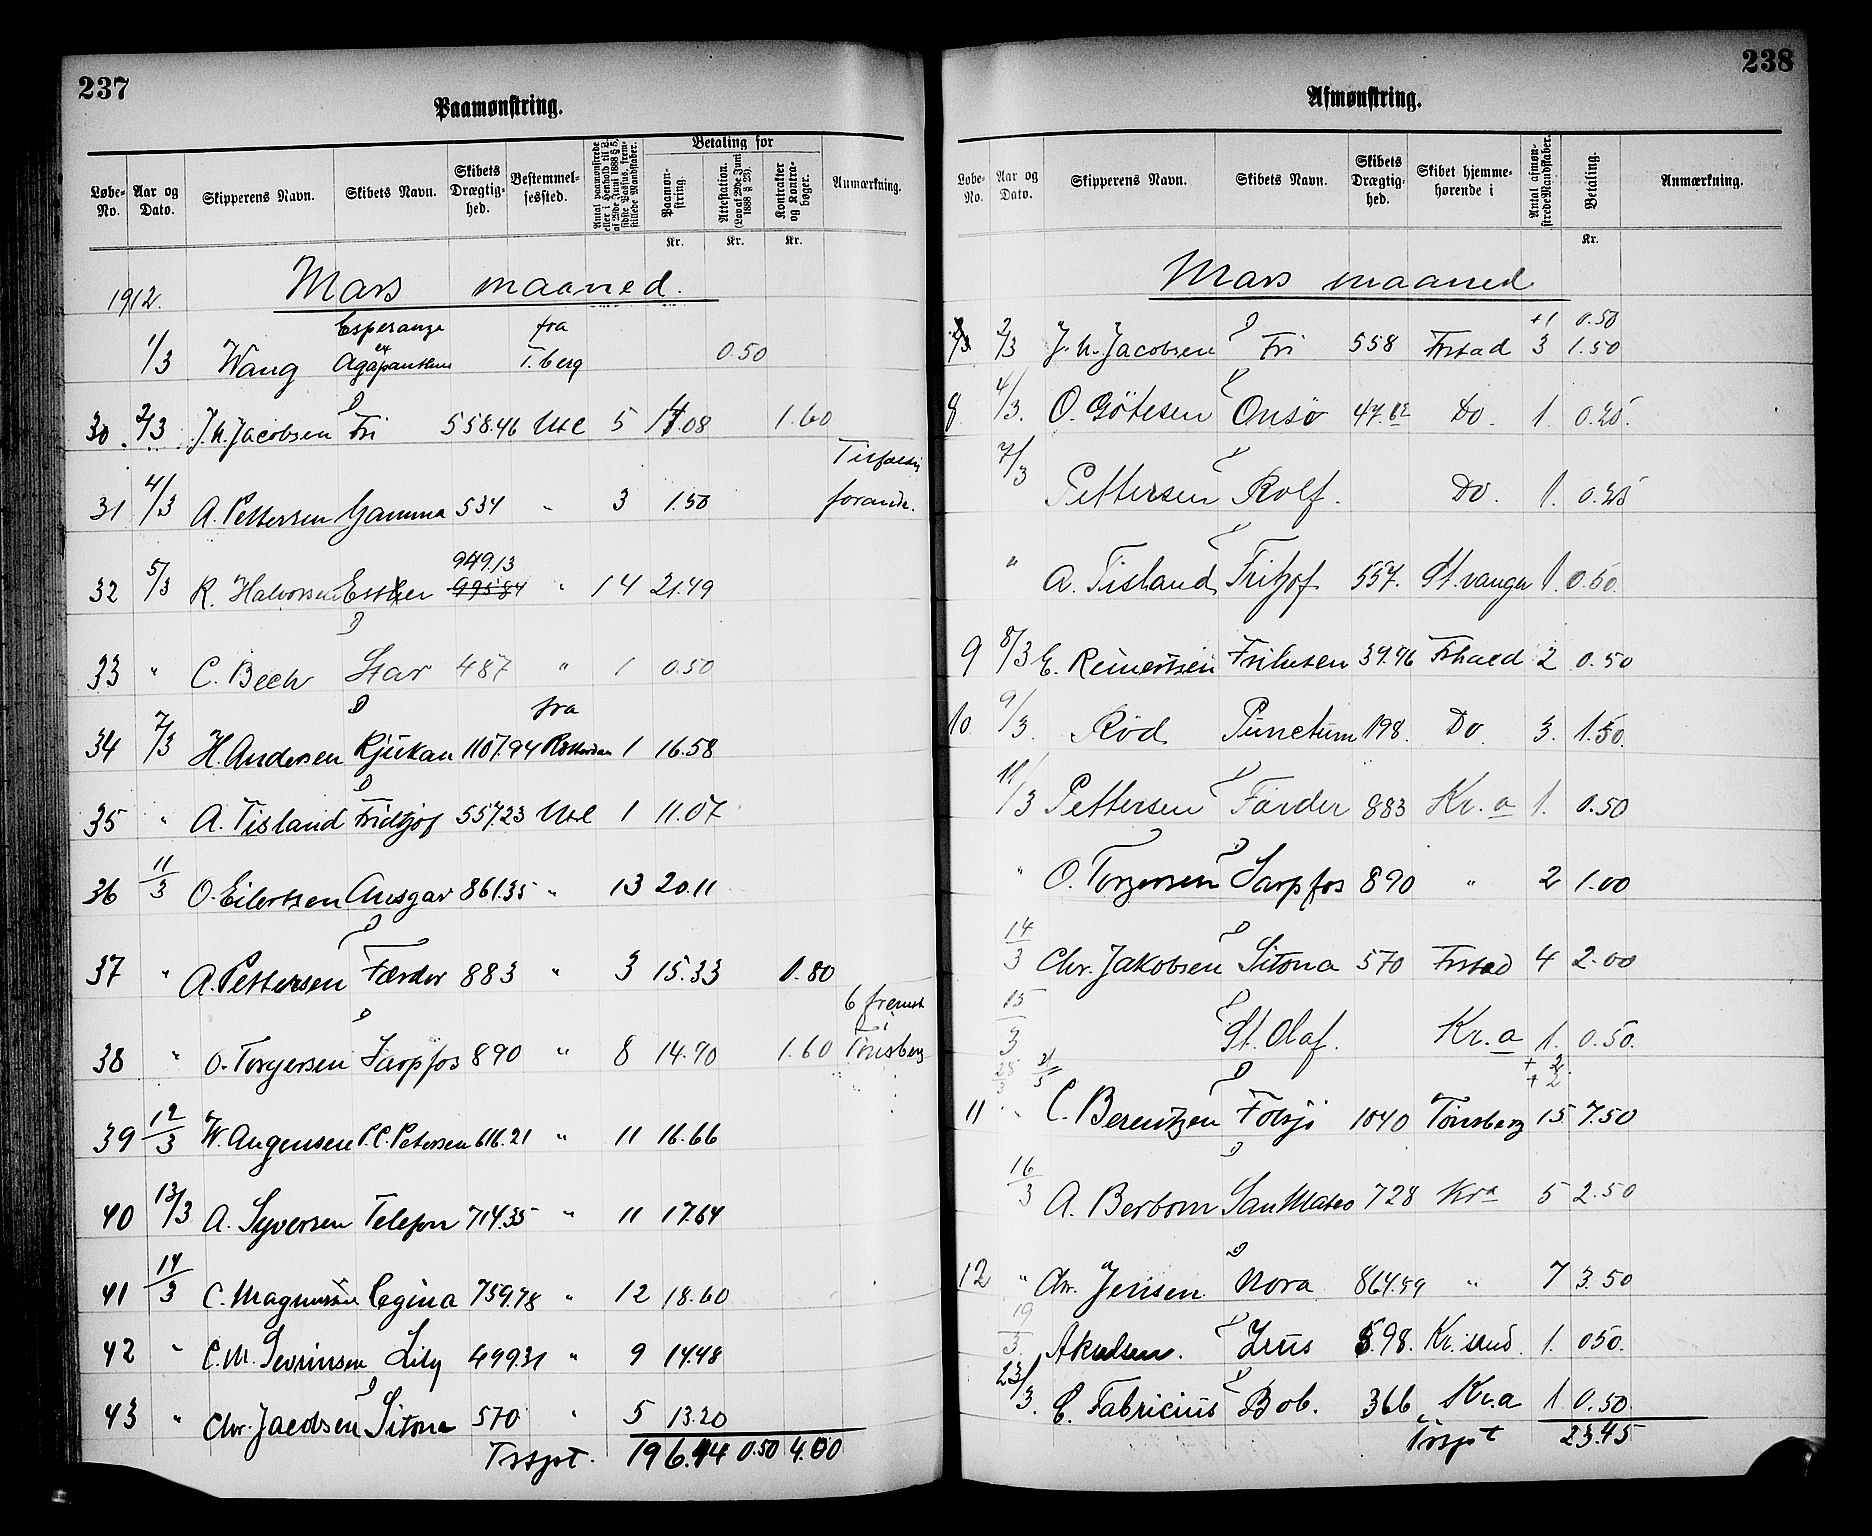 237
Paamønstring.
Løbe-No. Aar og Dato. Skipperens Navn. Skibets Navn. Skibets Drægtighed. Bestemmelsessted. Antal paamønstrede eller i Henhold til L. af 29de Juni 1888 § 5, sidste Passus, fremstillede Mandskaber. Betaling for Paamønstring. Attestation. (Lov af 29de Juni 1888 § 23). Kontrakter og Kontrabøger. Anmærkning.
Kr. Kr. Kr.
1912. Mars maaned.
1/3 Wang Esperanze ex Agapanthus fra T.berg 0.50
30 2/3 J. H. Jacobsen D Fri 558.46 Utl 5 11.08 1.60
31 4/3 A. Pettersen Gamma 534 " 3 1.50 forandr.
32 5/3 R. Halvorsen Esther 949.13 995.84 " 14 21.49
33 " C. Bech D Star 487 " 1 0.50
34 7/3 H. Andersen D Rjukan 1107.94 fra Rotterdam 1 16.58
35 " A. Tisland D Fridtjof 557.23 Utl 1 11.07
36 11/3 O. Eilertsen Ansgar 861.35 " 13 20.11
37 " A. Pettersen D Færder 883 " 3 15.33 1.80
38 " O. Torgersen D Sarpfos 890 " 8 14.70 1.60 6 fremst i Tønsberg
39 12/3 W. Augensen P. C. Petersen 616.21 " 11 16.66
40 13/3 A. Syversen Telefon 714.35 " 11 17.64
41 14/3 C. Magnussen Regina 759.78 " 12 18.60
42 " C. M. Sevrinsen Lily 499.31 " 9 14.48
43 " Chr. Jacobsen D Sitona 570 " 5 13.20
Trspt. 196.94 0.50 4.00
238
Afmønstring.
Løbe-No. Aar og Dato. Skipperens Navn. Skibets Navn. Skibets Drægtighed. Skibet hjemmehørende i Antal afmønstrede Mandskaber. Betaling. Anmærkning.
Kr.
Mars maaned
2/3 J. H. Jacobsen D Fri 558 Frstad +1 3 0.50 1.50
8 4/3. O. Götesen D Onsö 47.62 Do. 1. 0.25.
7/3 Pettersen D Rolf. Do. 1. 0.25
" A. Tisland D Fritjof 557. St.vanger 1. 0.50.
9 8/3 E. Reinertsen Frihusen 39.76 Frhald 2 0.50
10 9/3. Röd Punctum 198. Do 3. 1.50.
11/3 Pettersen D Färder 883 Kr.a 1. 0.50
" O. Torgersen D Sarpfos 890 " 2 1.00
14/3 Chr. Jakobsen D Sitona 570 Frstad 4 2.00
15/3 D St. Olaf. Kr.a 1. 0.50.
11 " C. Berentzen D Folsjö 1040 Tönsberg + 2 + 2 15 7.50
16/3 A. Berbom D San Mateo 728 Kra 5 2.50
12 " Chr. Jensen D Nora 864.59 " 7 3.50
19/3 Akselsen. D Zeus 598. Kr.sund. 1. 050.
23/3. C. Fabricius D Bob. 366 Kr.a 1 0.50
Trspt 23.45